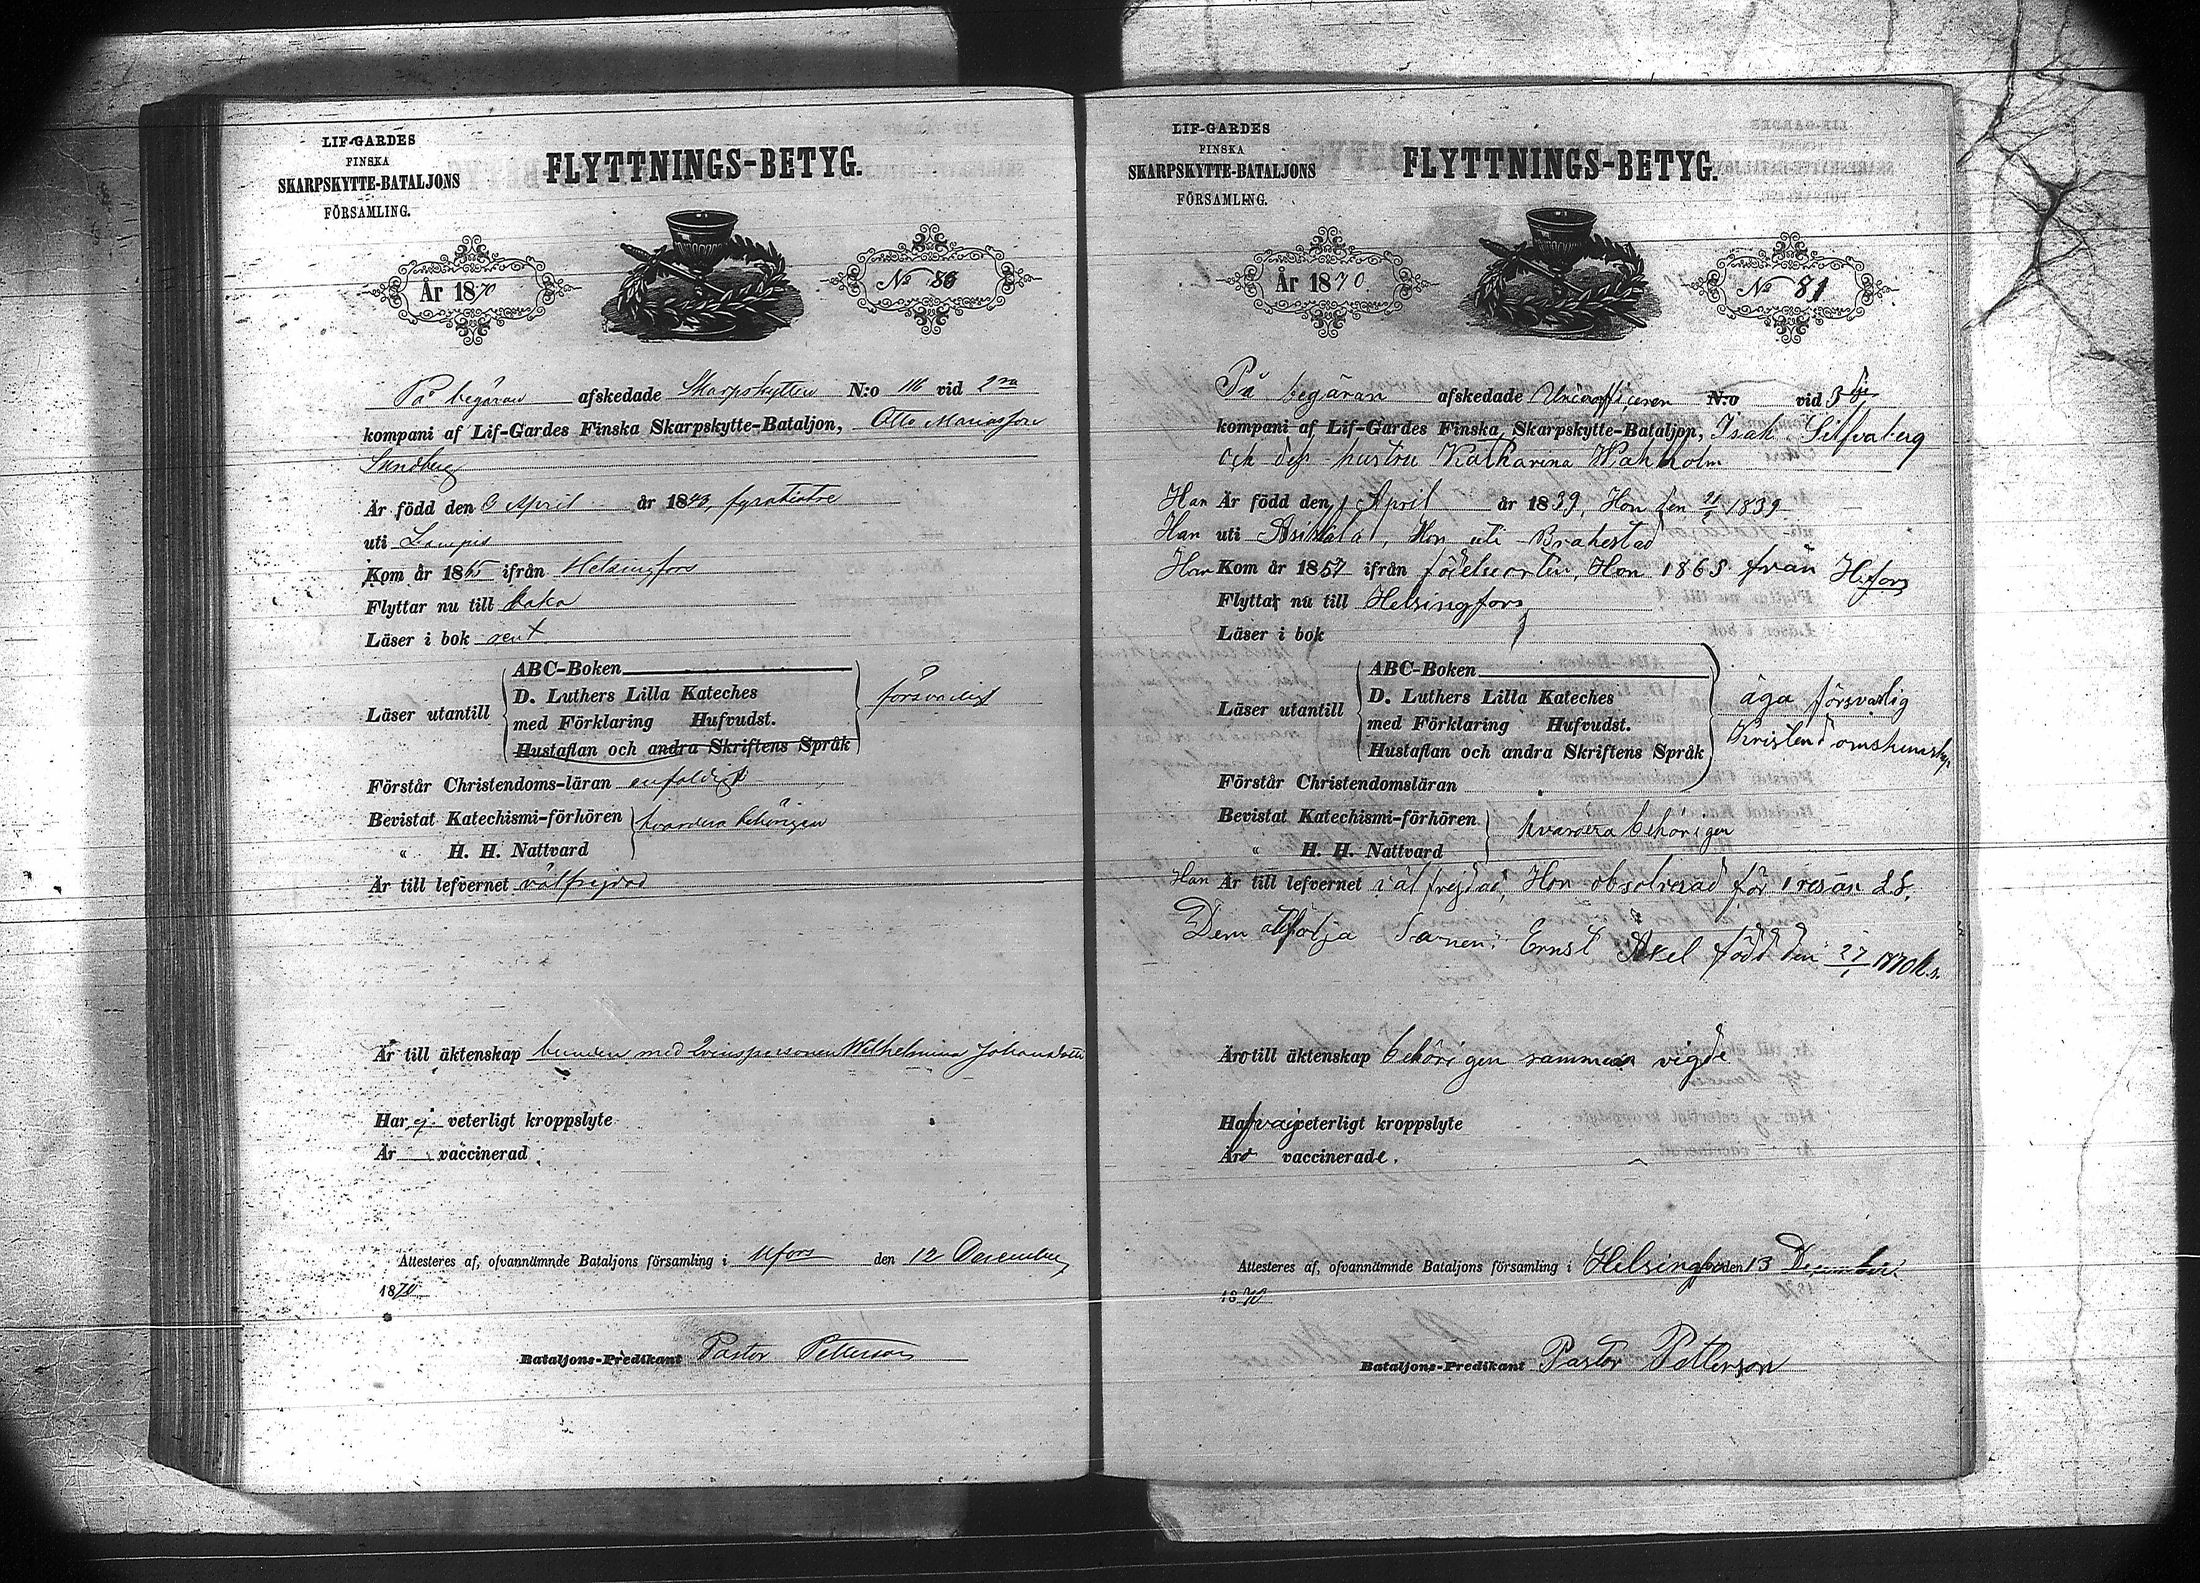 LIF-GARDES
FINSKA
SKARPSKYTTE-BATALJONS
FÖRSAMLING.
FLYTTNINGS-BETYG.
År 1870
No 80
På begäran afskedade Skarpskytten N:o 116 vid 2ra
kompani af Lif-Gardes Finska Skarpskytte-Bataljon, Otto Mariasson
Sundberg
Är född den 6 April år 1843, fyratiotre
uti Lampis
Kom år 1865 ifrån Helsingfors
Flyttar nu till
Läser i bok rent
ABC-Boken
D. Luthers Lilla Kateches
Läser utantill med Förklaring Hufvudst. försvarligt
Hustaflan och andra Skriftens Språk
Förstår Christendoms-läran enfaldigt
Bevistat Katechismi-förhören hvardera behörigen
" H. H. Nattvard
Är till lefvernet välfrejdad
Är till äktenskap bunden med Qvinspersonen Wilhelmina Johansdotter
Har ej veterligt kroppslyte
Är vaccinerad.
Attesteres af, ofvannämnde Bataljons församling i Hfors den 12 December
1870
Bataljons-Predikant Pastor Petterson
LIF-GARDES
FINSKA
SKARPSKYTTE-BATALJONS
FÖRSAMLING.
FLYTTNINGS-BETYG.
År 1870
No 81
På begäran afskedade Underofficeren N:o vid 3dje
kompani af Lif-Gardes Finska Skarpskytte-Bataljon, Isak Silfvaberg
och dess hustru Katharina Wahlholm
Han Är född den 1 April år 1839, Hon den 21/ 1839
Han uti Asikkala, Hon uti Brahestad
Han Kom år 1857 ifrån födelseorten, Hon 1868 från Hfors
Flyttar nu till Helsingfors
Läser i bok
ABC-Boken
D. Luthers Lilla Kateches äga försvarlig
Läser utantill med Förklaring Hufvudst.
Hustaflan och andra Skriftens Språk Kristendomskunskap
Förstår Christendomsläran
Bevistat Katechismi-förhören hvardera behörigen
" H. H. Nattvard
Han Är till lefvernet välfrejdad, Hon absolverad för 1 resan LS.
Dem åtfölja Sonen: Ernst Axel född den 27/1 1870
Äro till äktenskap behörigen samman vigde
Hafva ej veterligt kroppslyte
Äro vaccinerade.
Attesteres af, ofvannämnde Bataljons församling i Helsingfors den 13 December.
1870
Bataljons-Predikant Pastor Petterson